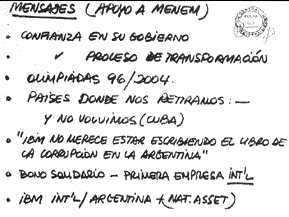 MENSAJES (APOYO A MENEM)
• CONFIANZA EN SU GOBIERNO
• ✓ PROCESO DE TRANSFORMACIÓN
• OLIMPIADAS 96/2004.
• PAÍSES DONDE NOS RETIRAMOS: —
Y NO VOLVIMOS (CUBA)
• "IBM NO MERECE ESTAR ESCRIBIENDO EL LIBRO DE
LA CORRUPCIÓN EN LA ARGENTINA"
• BONO SOLIDARIO – PRIMERA EMPRESA INT'L
• IBM INT'L/ARGENTINA + (NAT. ASSET)